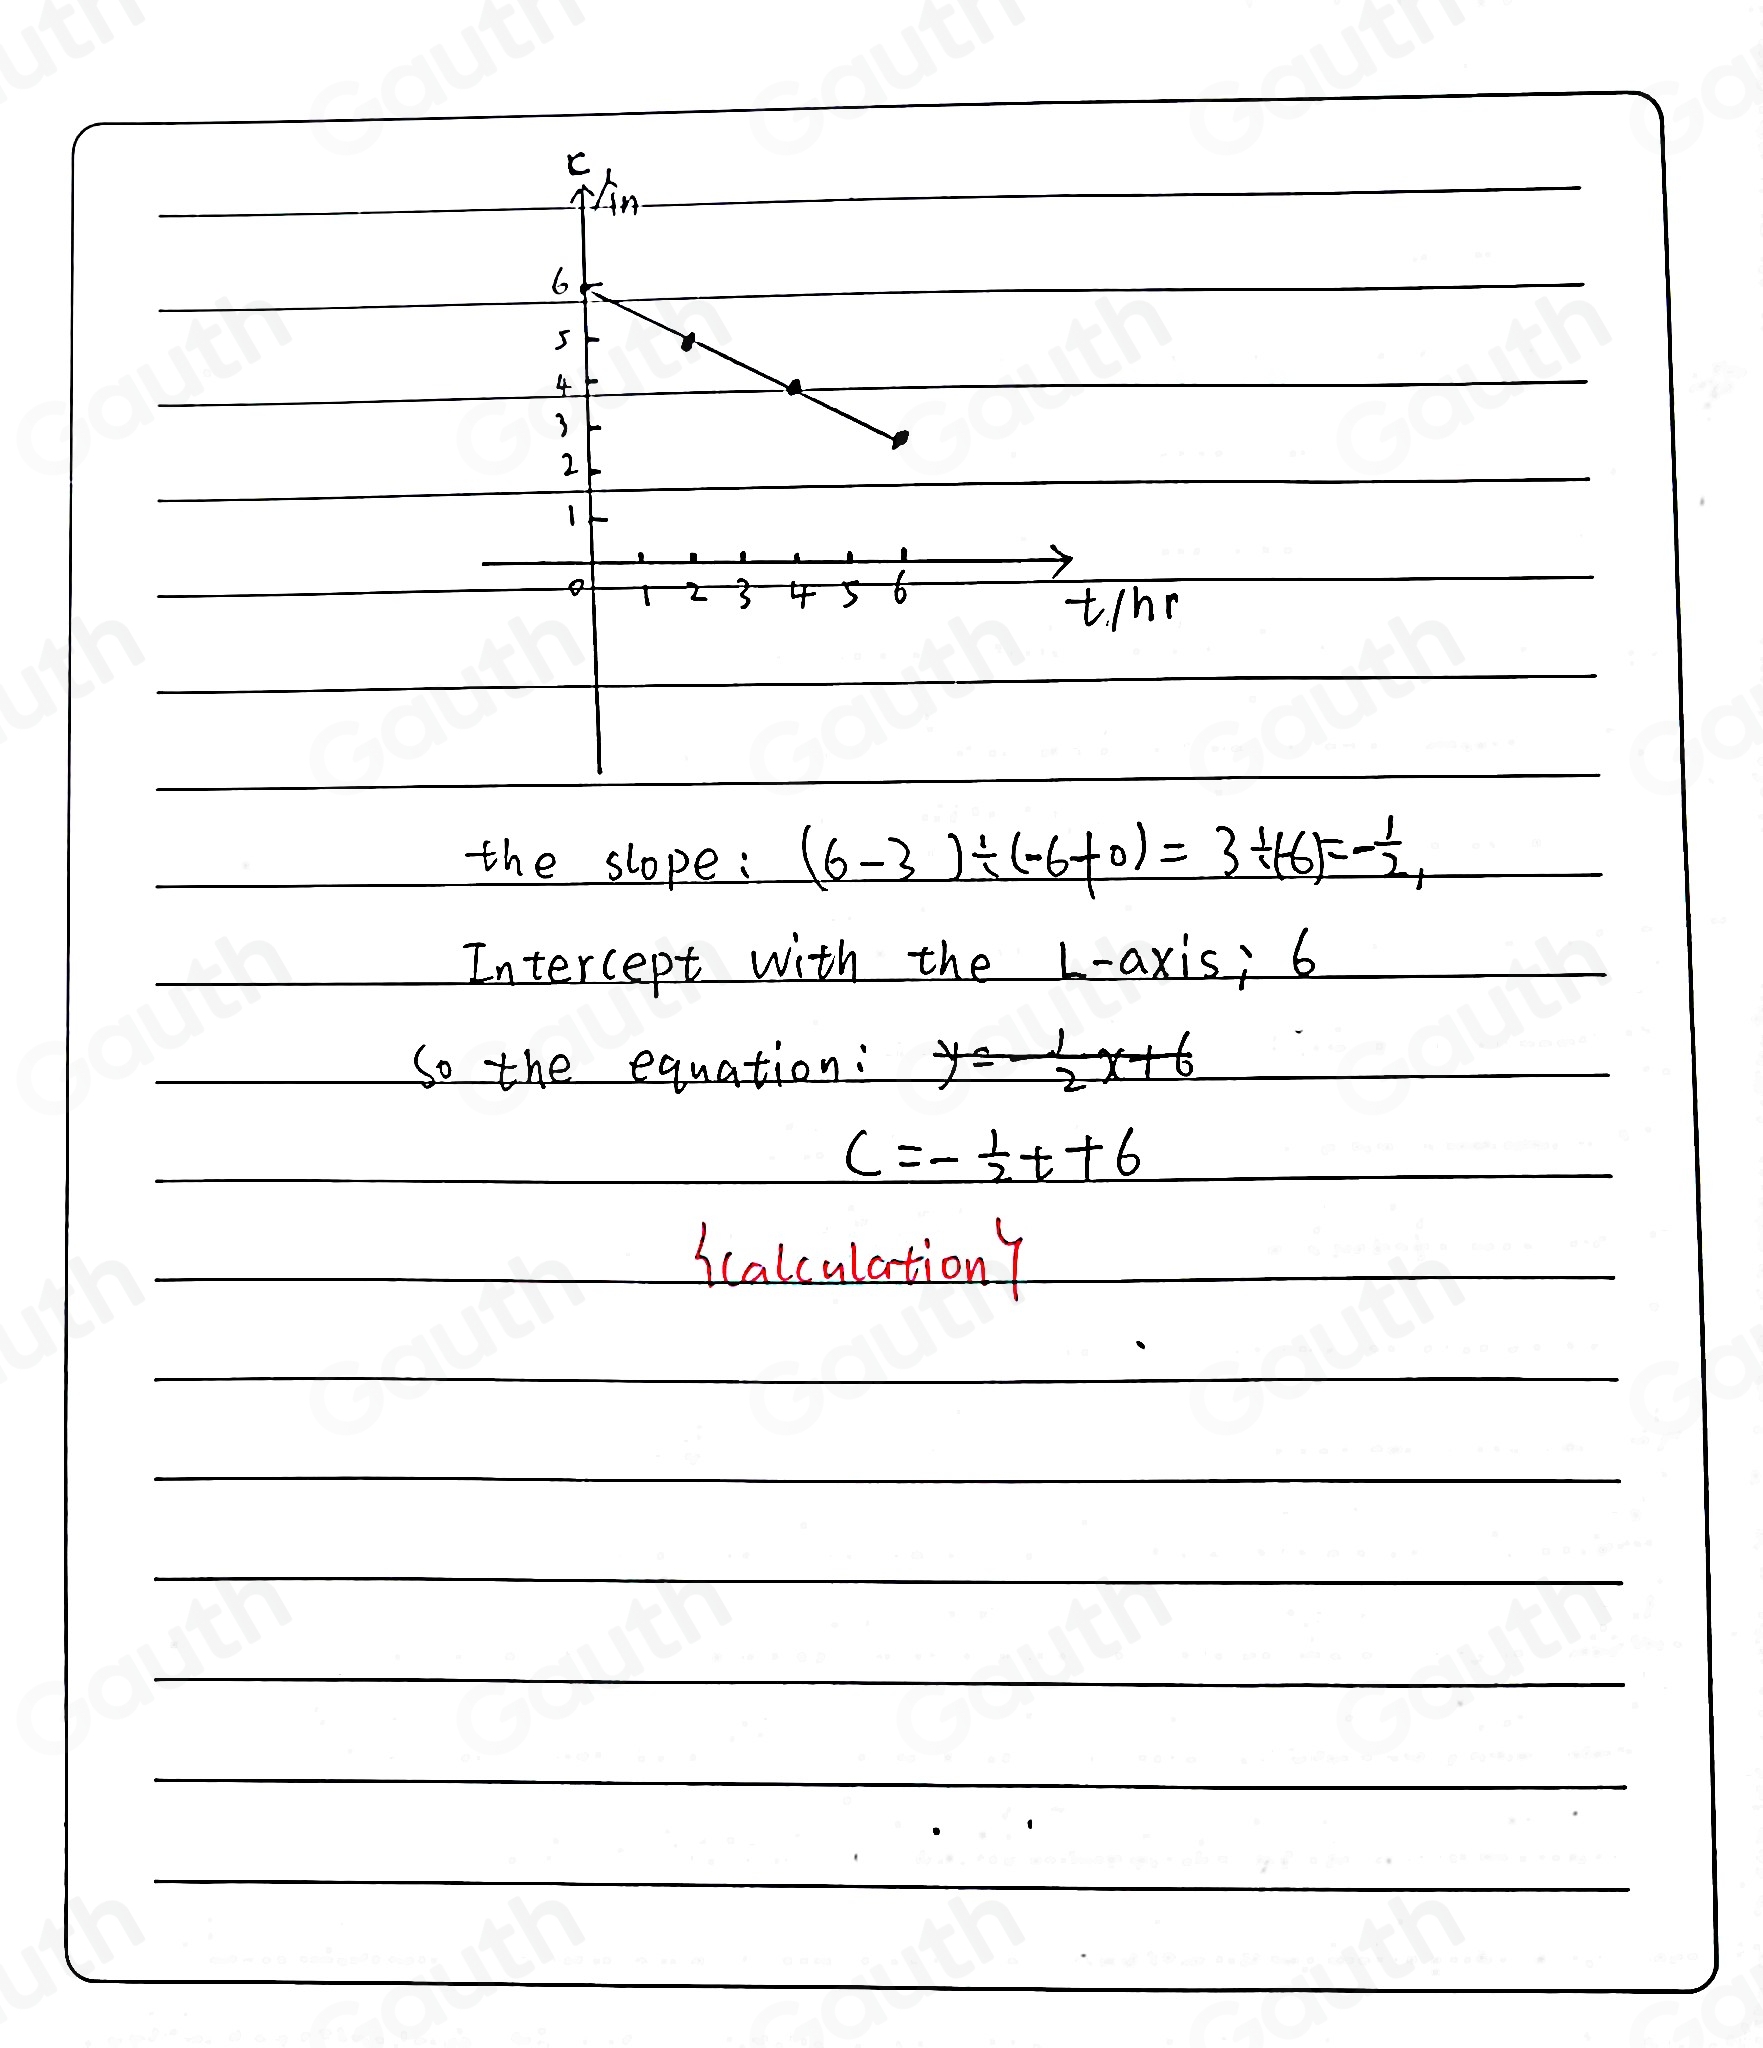 c
/in
6
5
4
3
2
1
0 1 2 3 4 5 6
t/hr
the slope: (6-3)÷(-6+0)=3÷(-6)=-1/2,
Intercept with the L-axis; 6
So the equation: y=-1/2x+6
C=-1/2t+6
{calculation}
Gauth